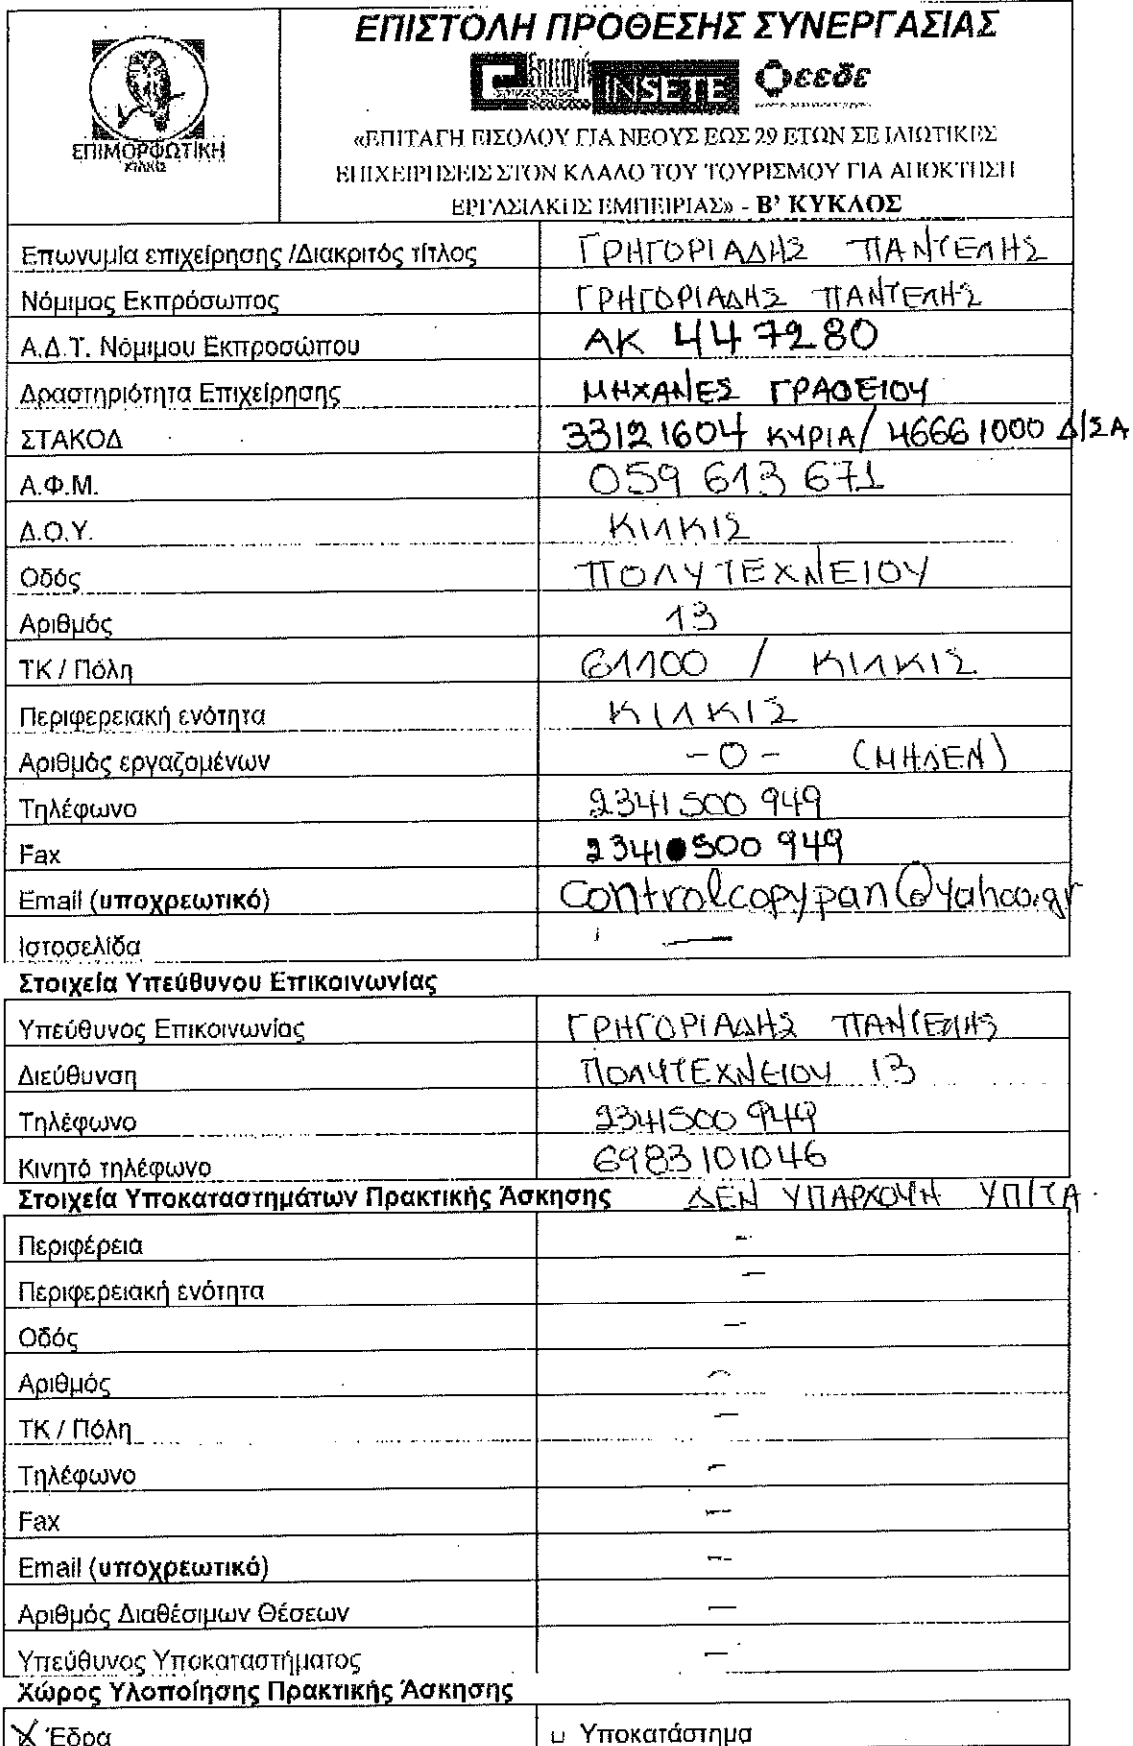 ΕΠΙΣΤΟΛΗ ΠΡΟΘΕΣΗΣ ΣΥΝΕΡΓΑΣΙΑΣ
ΕΠΙΜΟΡΦΩΤΙΚΗ
ΚΙΛΚΙΣ
INSETE εεδε
«ΕΠΙΤΑΓΗ ΕΙΣΟΔΟΥ ΓΙΑ ΝΕΟΥΣ ΕΩΣ 29 ΕΤΩΝ ΣΕ ΙΔΙΩΤΙΚΕΣ
ΕΠΙΧΕΙΡΗΣΕΙΣ ΣΤΟΝ ΚΛΑΔΟ ΤΟΥ ΤΟΥΡΙΣΜΟΥ ΓΙΑ ΑΠΟΚΤΗΣΗ
ΕΡΓΑΣΙΑΚΗΣ ΕΜΠΕΙΡΙΑΣ» - Β' ΚΥΚΛΟΣ
Επωνυμία επιχείρησης /Διακριτός τίτλος ΓΡΗΓΟΡΙΑΔΗΣ ΠΑΝΤΕΛΗΣ
Νόμιμος Εκπρόσωπος ΓΡΗΓΟΡΙΑΔΗΣ ΠΑΝΤΕΛΗΣ
Α.Δ.Τ. Νόμιμου Εκπροσώπου ΑΚ 447280
Δραστηριότητα Επιχείρησης ΜΗΧΑΝΕΣ ΓΡΑΦΕΙΟΥ
ΣΤΑΚΟΔ 33121604 ΚΥΡΙΑ/ 46661000 Δ/ΣΑ
Α.Φ.Μ. 059 613 671
Δ.Ο.Υ. ΚΙΛΚΙΣ
Οδός ΠΟΛΥΤΕΧΝΕΙΟΥ
Αριθμός 13
ΤΚ / Πόλη 61100 / ΚΙΛΚΙΣ
Περιφερειακή ενότητα ΚΙΛΚΙΣ
Αριθμός εργαζομένων -0- (ΜΗΔΕΝ)
Τηλέφωνο 2341 500 949
Fax 2341 500 949
Email (υποχρεωτικό) controlcopypan@yahoo.gr
Ιστοσελίδα —
Στοιχεία Υπεύθυνου Επικοινωνίας
Υπεύθυνος Επικοινωνίας ΓΡΗΓΟΡΙΑΔΗΣ ΠΑΝΤΕΛΗΣ
Διεύθυνση ΠΟΛΥΤΕΧΝΕΙΟΥ 13
Τηλέφωνο 2341500 949
Κινητό τηλέφωνο 6983101046
Στοιχεία Υποκαταστημάτων Πρακτικής Άσκησης ΔΕΝ ΥΠΑΡΧΟΥΝ ΥΠ/ΤΑ.
Περιφέρεια -
Περιφερειακή ενότητα -
Οδός -
Αριθμός -
ΤΚ / Πόλη -
Τηλέφωνο -
Fax -
Email (υποχρεωτικό) -
Αριθμός Διαθέσιμων Θέσεων -
Υπεύθυνος Υποκαταστήματος -
Χώρος Υλοποίησης Πρακτικής Άσκησης
X Έδρα □ Υποκατάστημα